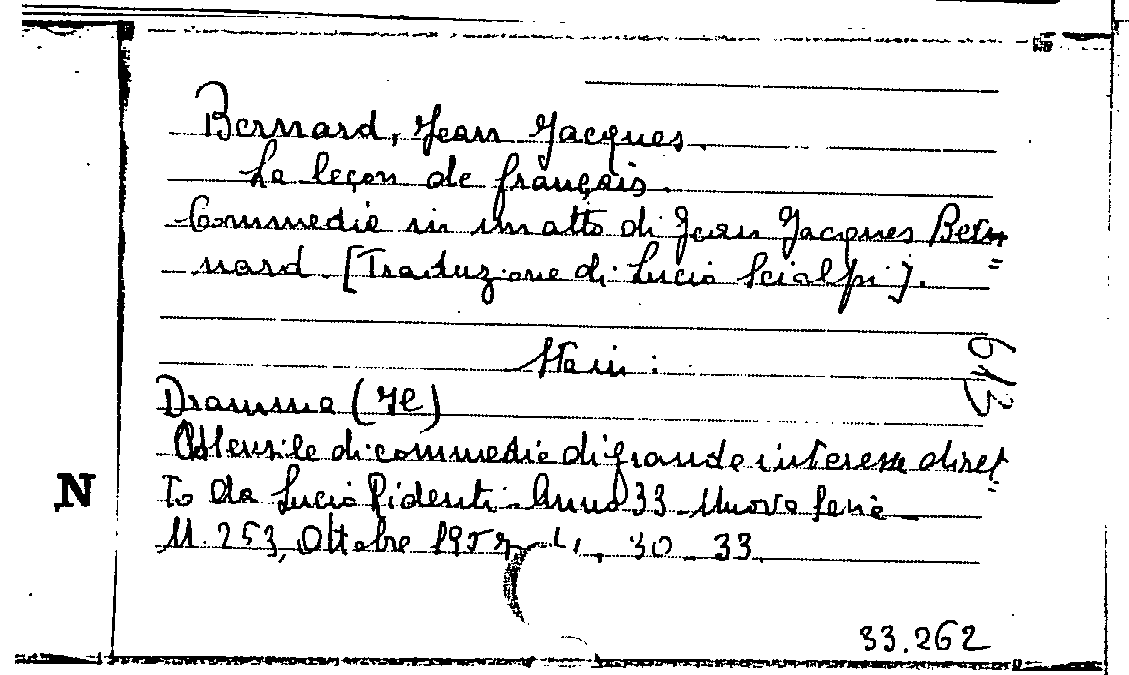 Bernard, Jean Jacques.
La leçon de français.
Commedia in un atto di Jean Jacques Ber=
nard. [Traduzione di Lucio Scialpi].
Sta in:
Dramma (Il)
Mensile di commedie di grande interesse diret=
to da Lucio Ridenti - Anno 33 - Nuova serie -
N
N. 253, Ottobre 1957, 30-33
613
33.262